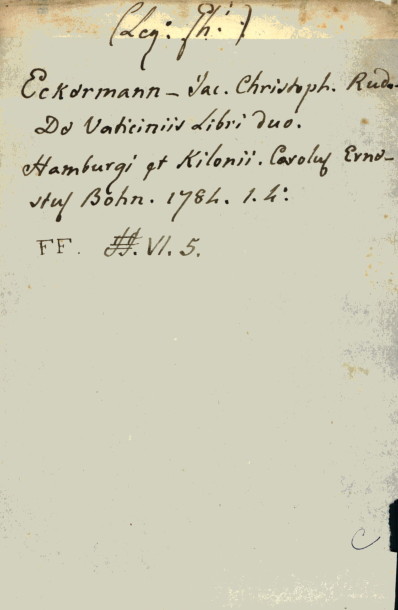 (Leg: Th:)
Eckermann – Jac. Christoph. Rudo-
De Vaticiniis Libri duo.
Hamburgi et Kilonii. Carolus Erne-
stus Bohn. 1784. 1. 4:
FF. VI. 5.
C